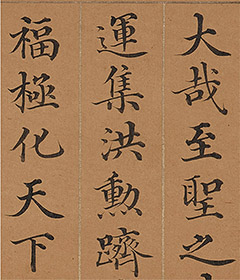 大哉至聖之
運集洪勳躋
福極化天下